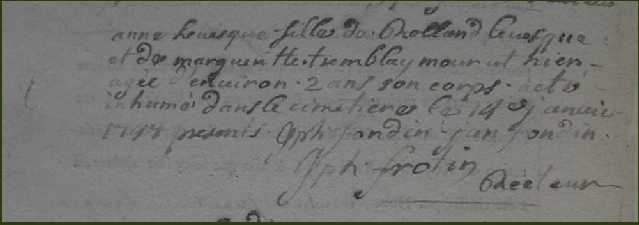 anne levesque fille de Rolland levesque
et de margueritte tremblay mourut hier
agée d'environ 2 ans son corps a eté
inhumé dans le cimetiere le 14e janvier
presents Jph fondin jan fondin
Jph frotin
Recteur